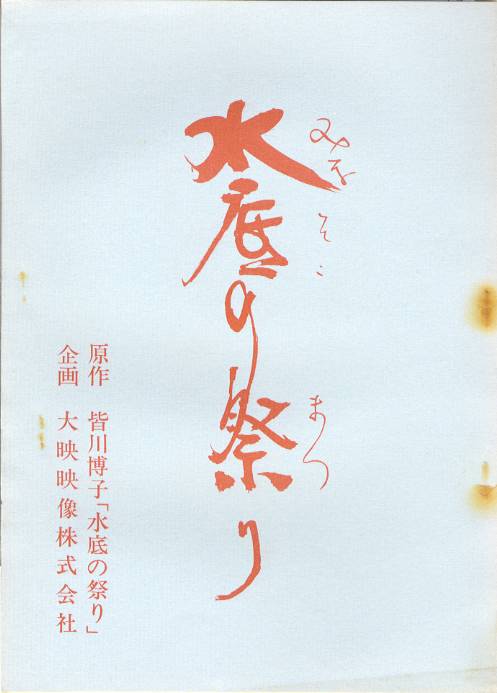 水底の祭り
みなそこ まつ
原作 皆川博子「水底の祭り」
企画 大映映像株式会社